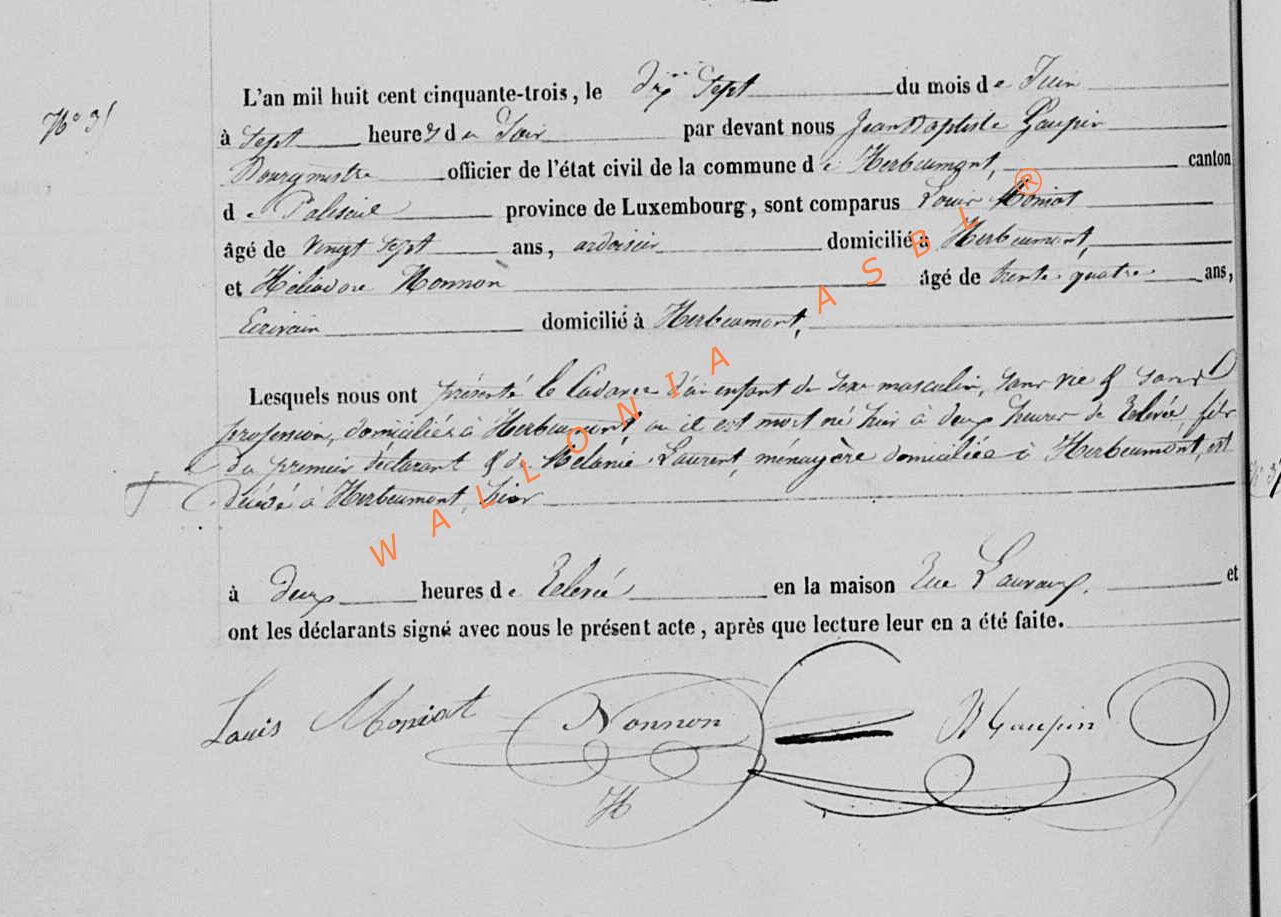 L'an mil huit cent cinquante-trois, le dix sept du mois de Juin
N° 31
à sept heures du Soir par devant nous Jean Baptiste Gaupin
Bourgmestre officier de l'état civil de la commune de Herbeumont, canton
de Paliseul province de Luxembourg, sont comparus Louis Moniot
âgé de vingt sept ans, ardoisier domicilié à Herbeumont,
et Héliodore Nonnon âgé de trente quatre ans,
Ecrivain domicilié à Herbeumont,
Lesquels nous ont présenté le Cadavre d'un enfant du sexe masculin, sans vie & sans
profession, domicilié à Herbeumont, ou il est mort né hier à deux heures de Relevée, fils
du premier déclarant & de Mélanie Laurent, ménagère domiciliée à Herbeumont, est
décédé à Herbeumont, hier
à deux heures de Relevée en la maison Rue et
ont les déclarants signé avec nous le présent acte, après que lecture leur en a été faite.
Louis Moniot Nonnon Gaupin
H
WALLONIA ASBL ®